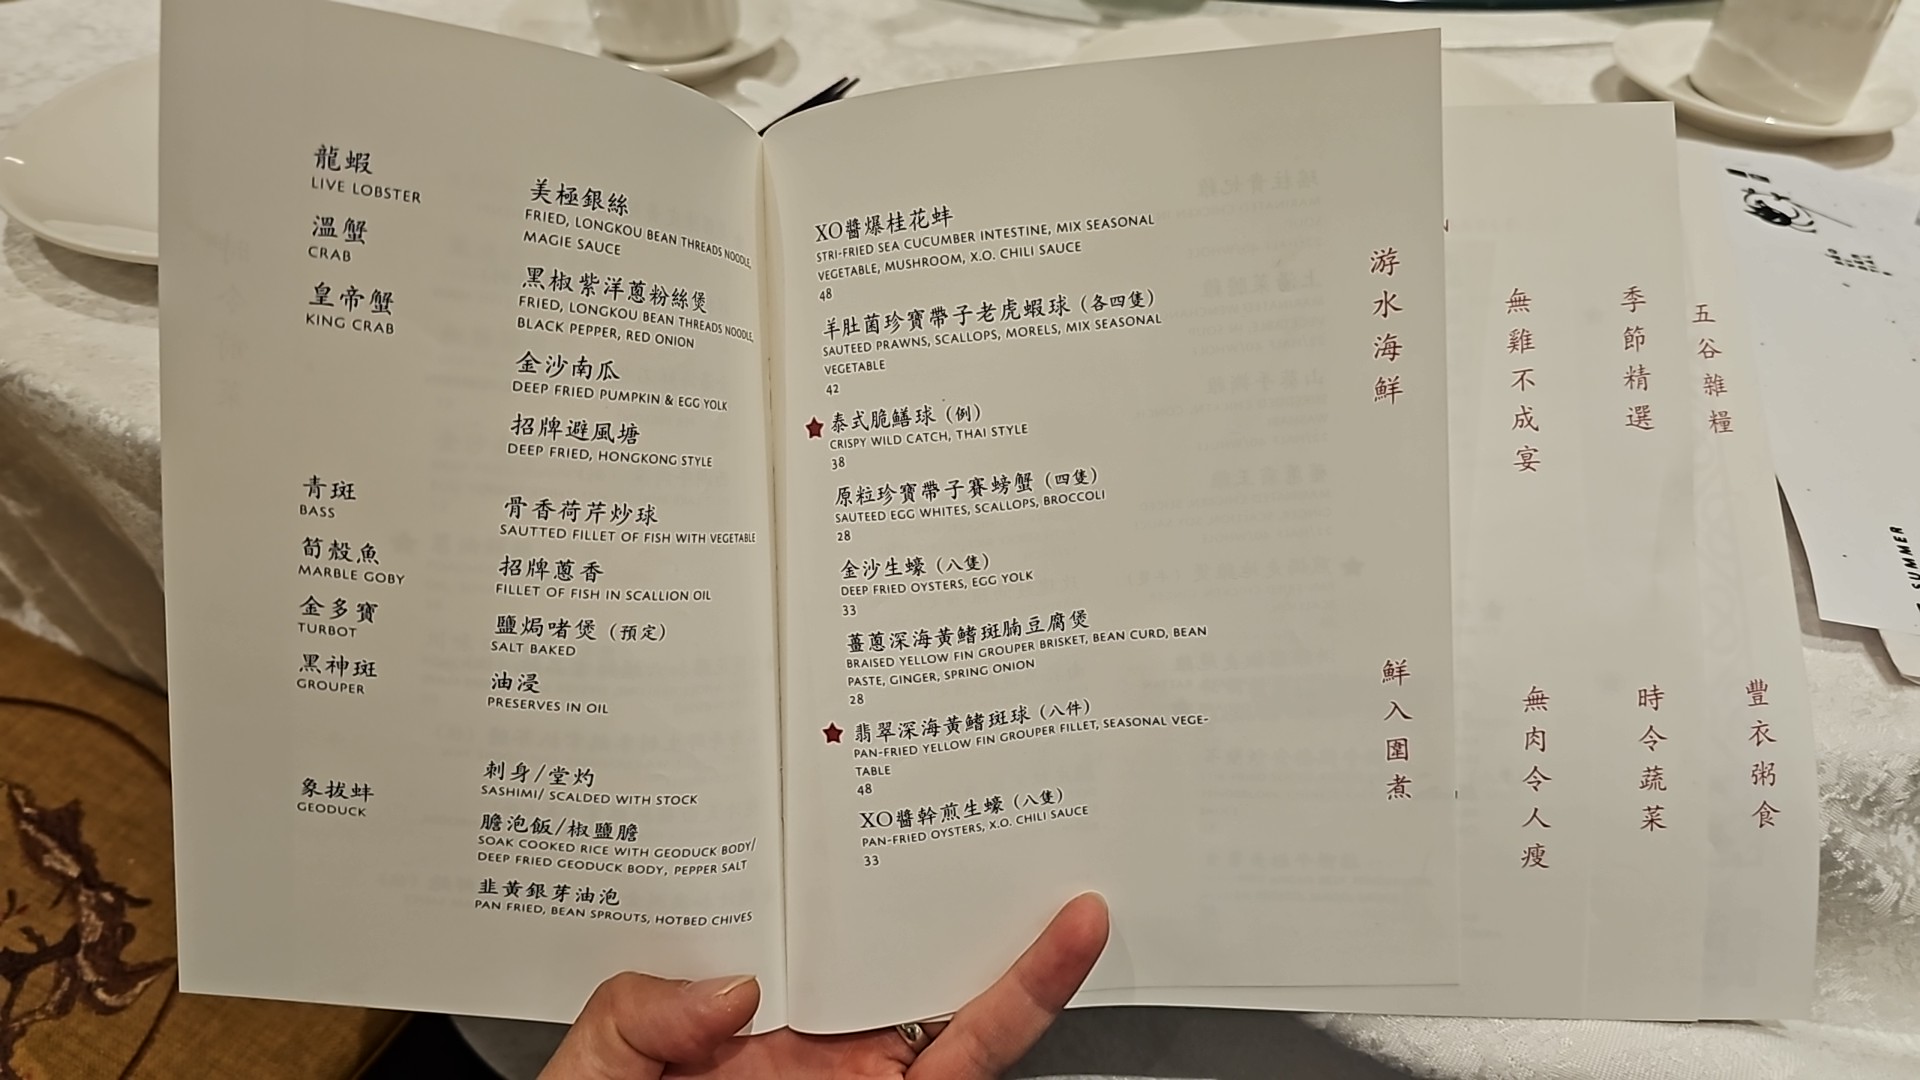 龍蝦
LIVE LOBSTER
溫蟹
CRAB
皇帝蟹
KING CRAB
美極銀絲
FRIED, LONGKOU BEAN THREADS NOODLE,
MAGIE SAUCE
黑椒紫洋蔥粉絲煲
FRIED, LONGKOU BEAN THREADS NOODLE,
BLACK PEPPER, RED ONION
金沙南瓜
DEEP FRIED PUMPKIN & EGG YOLK
招牌避風塘
DEEP FRIED, HONGKONG STYLE
青斑
BASS
筍殼魚
MARBLE GOBY
金多寶
TURBOT
黑神斑
GROUPER
骨香荷芹炒球
SAUTTED FILLET OF FISH WITH VEGETABLE
招牌蔥香
FILLET OF FISH IN SCALLION OIL
鹽焗啫煲（預定）
SALT BAKED
油浸
PRESERVES IN OIL
象拔蚌
GEODUCK
刺身/堂灼
SASHIMI/ SCALDED WITH STOCK
膽泡飯/椒鹽膽
SOAK COOKED RICE WITH GEODUCK BODY/
DEEP FRIED GEODUCK BODY, PEPPER SALT
韭黃銀芽油泡
PAN FRIED, BEAN SPROUTS, HOTBED CHIVES
XO醬爆桂花蚌
STRI-FRIED SEA CUCUMBER INTESTINE, MIX SEASONAL
VEGETABLE, MUSHROOM, X.O. CHILI SAUCE
48
羊肚菌珍寶帶子老虎蝦球（各四隻）
SAUTEED PRAWNS, SCALLOPS, MORELS, MIX SEASONAL
VEGETABLE
42
泰式脆鱔球（例）
CRISPY WILD CATCH, THAI STYLE
38
原粒珍寶帶子賽螃蟹（四隻）
SAUTEED EGG WHITES, SCALLOPS, BROCCOLI
28
金沙生蠔（八隻）
DEEP FRIED OYSTERS, EGG YOLK
33
薑蔥深海黃鰭斑腩豆腐煲
BRAISED YELLOW FIN GROUPER BRISKET, BEAN CURD, BEAN
PASTE, GINGER, SPRING ONION
28
翡翠深海黃鰭斑球（八件）
PAN-FRIED YELLOW FIN GROUPER FILLET, SEASONAL VEGE-
TABLE
48
XO醬幹煎生蠔（八隻）
PAN-FRIED OYSTERS, X.O. CHILI SAUCE
33
游水海鮮
鮮入圍煮
無雞不成宴
無肉令人瘦
季節精選
時令蔬菜
五谷雜糧
豐衣粥食
SUMMER